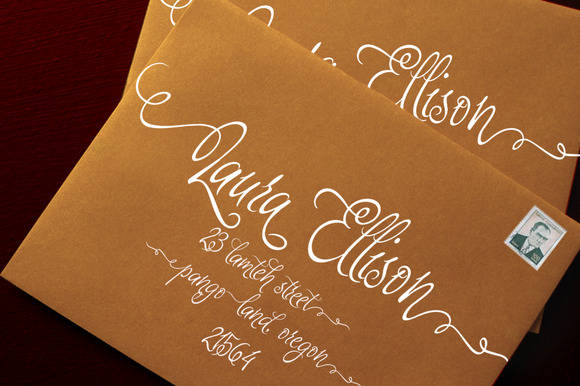 Ellison
Laura Ellison
23 lamteh street
pango land, oregon
21564